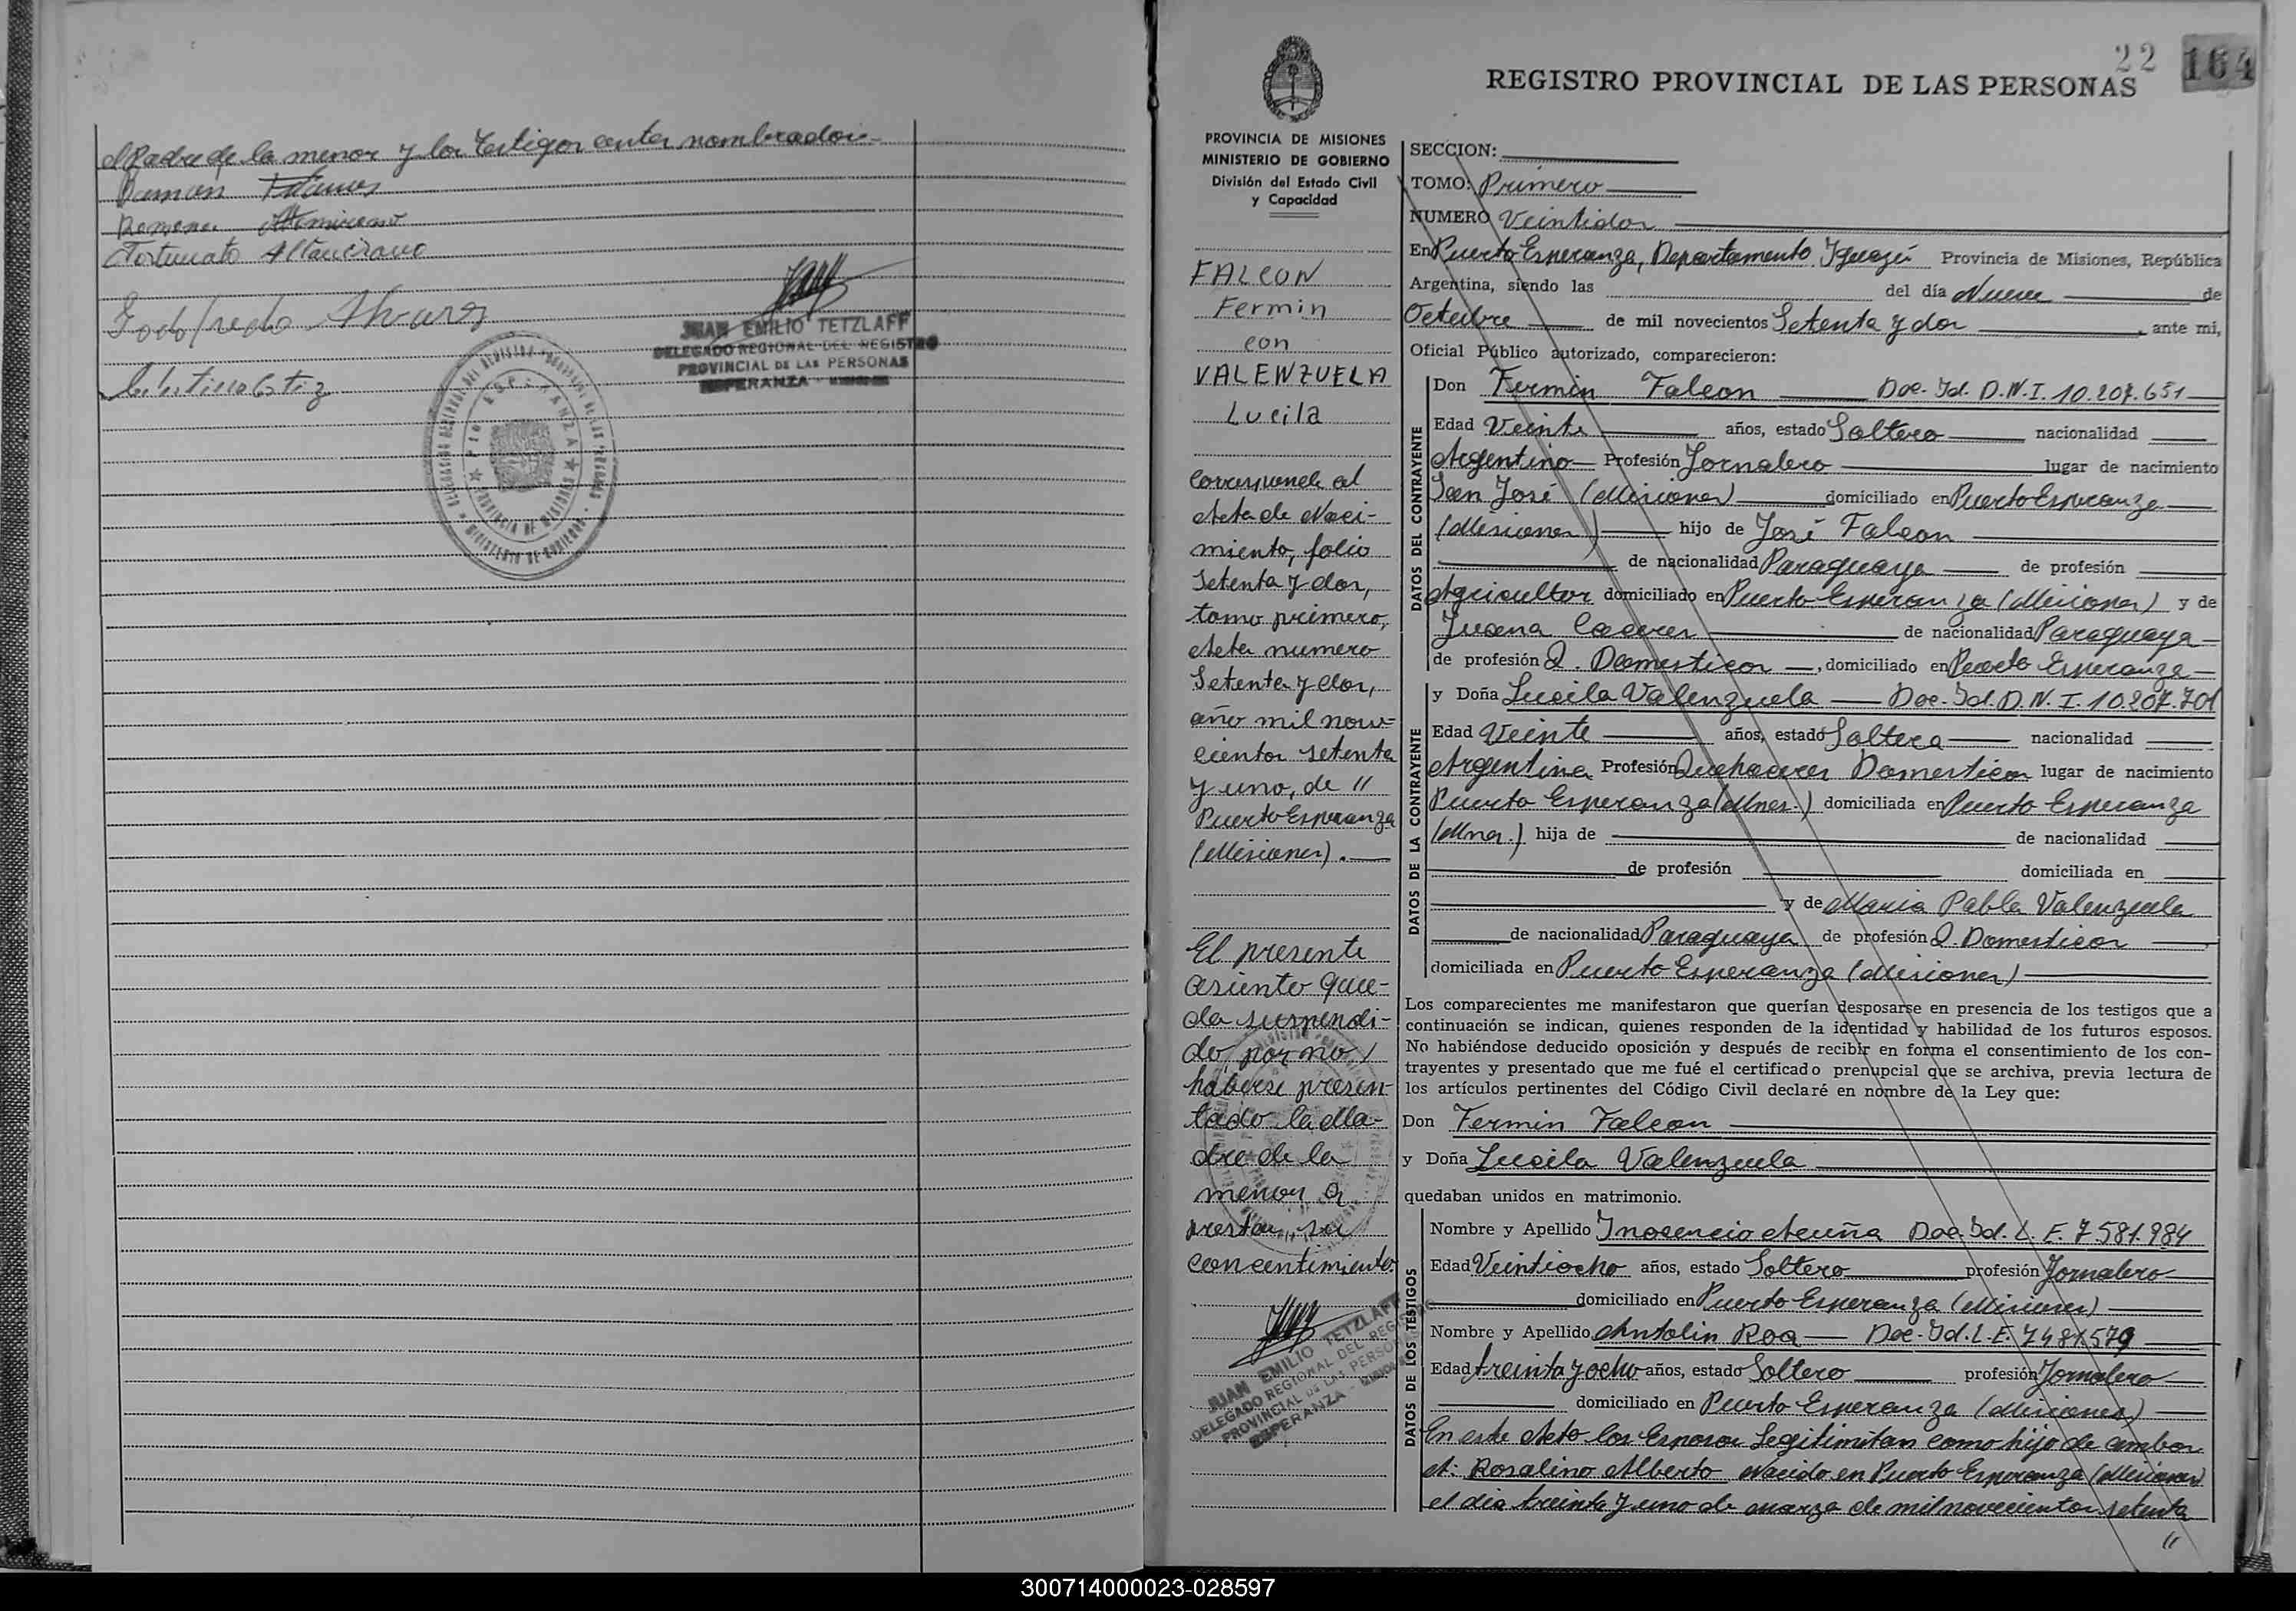 el Padre de la menor y los testigos antes nombrados.-
Ramon
Ramona
Fortunato Altamirano
Godofredo Alvarez
Celestina Ortiz
JUAN EMILIO TETZLAFF
DELEGADO REGIONAL DEL REGISTRO
PROVINCIAL DE LAS PERSONAS
ESPERANZA - MISIONES
22 164
REGISTRO PROVINCIAL DE LAS PERSONAS
PROVINCIA DE MISIONES
MINISTERIO DE GOBIERNO
División del Estado Civil
y Capacidad
FALCON
Fermin
con
VALENZUELA
Lucila
Corresponde al
Acta de Naci-
miento, folio
Setenta y dos,
tomo primero,
Acta numero
Setenta y dos,
año mil nove=
cientos setenta
y uno, de "
Puerto Esperanza
(Misiones).
El presente
asiento que-
da suspendi-
do, por no
haberse presen-
tado la Ma-
dre de la
menor a
prestar su
concentimiento.
JUAN EMILIO TETZLAFF
DELEGADO REGIONAL DEL REGISTRO
PROVINCIAL DE LAS PERSONAS
ESPERANZA - MISIONES
SECCION:
TOMO: Primero
NUMERO Veintidos
En Puerto Esperanza, Departamento Iguazú Provincia de Misiones, República
Argentina, siendo las del día Nueve de
Octubre de mil novecientos Setenta y dos, ante mi,
Oficial Público autorizado, comparecieron:
DATOS DEL CONTRAYENTE
Don Fermin Falcon Doc. Id. D.N.I. 10.207.651
Edad Veinte años, estado Soltero nacionalidad
Argentino Profesión Jornalero lugar de nacimiento
San José (Misiones) domiciliado en Puerto Esperanza
(Misiones) hijo de José Falcon
de nacionalidad Paraguaya de profesión
Agricultor domiciliado en Puerto Esperanza (Misiones) y de
Juana Caceres de nacionalidad Paraguaya
de profesión Q. Domesticos, domiciliado en Puerto Esperanza
DATOS DE LA CONTRAYENTE
y Doña Lucila Valenzuela Doc. Id. D.N.I. 10.207.701
Edad Veinte años, estado Soltera nacionalidad
Argentina Profesión Quehaceres Domesticos lugar de nacimiento
Puerto Esperanza (Mnes.) domiciliada en Puerto Esperanza
(Mnes.) hija de de nacionalidad
de profesión domiciliada en
y de Maria Pabla Valenzuela
de nacionalidad Paraguaya de profesión Q. Domesticos
domiciliada en Puerto Esperanza (Misiones)
Los comparecientes me manifestaron que querían desposarse en presencia de los testigos que a
continuación se indican, quienes responden de la identidad y habilidad de los futuros esposos.
No habiéndose deducido oposición y después de recibir en forma el consentimiento de los con-
trayentes y presentado que me fué el certificado prenupcial que se archiva, previa lectura de
los artículos pertinentes del Código Civil declaré en nombre de la Ley que:
Don Fermin Falcon
y Doña Lucila Valenzuela
quedaban unidos en matrimonio.
DATOS DE LOS TESTIGOS
Nombre y Apellido Inocencio Acuña Doc. Id. L. E. 7.581.984
Edad Veintiocho años, estado Soltero profesión Jornalero
domiciliado en Puerto Esperanza (Misiones)
Nombre y Apellido Antolin Roa Doc. Id. L. E. 7481579
Edad treinta y ocho años, estado Soltero profesión Jornalero
domiciliado en Puerto Esperanza (Misiones)
En este Acto los Esposos Legitimitan como hijo de ambos
A: Rosalino Alberto Nacido en Puerto Esperanza (Misiones)
el dia treinta y uno de marzo de mil novecientos setenta
"
300714000023-028597